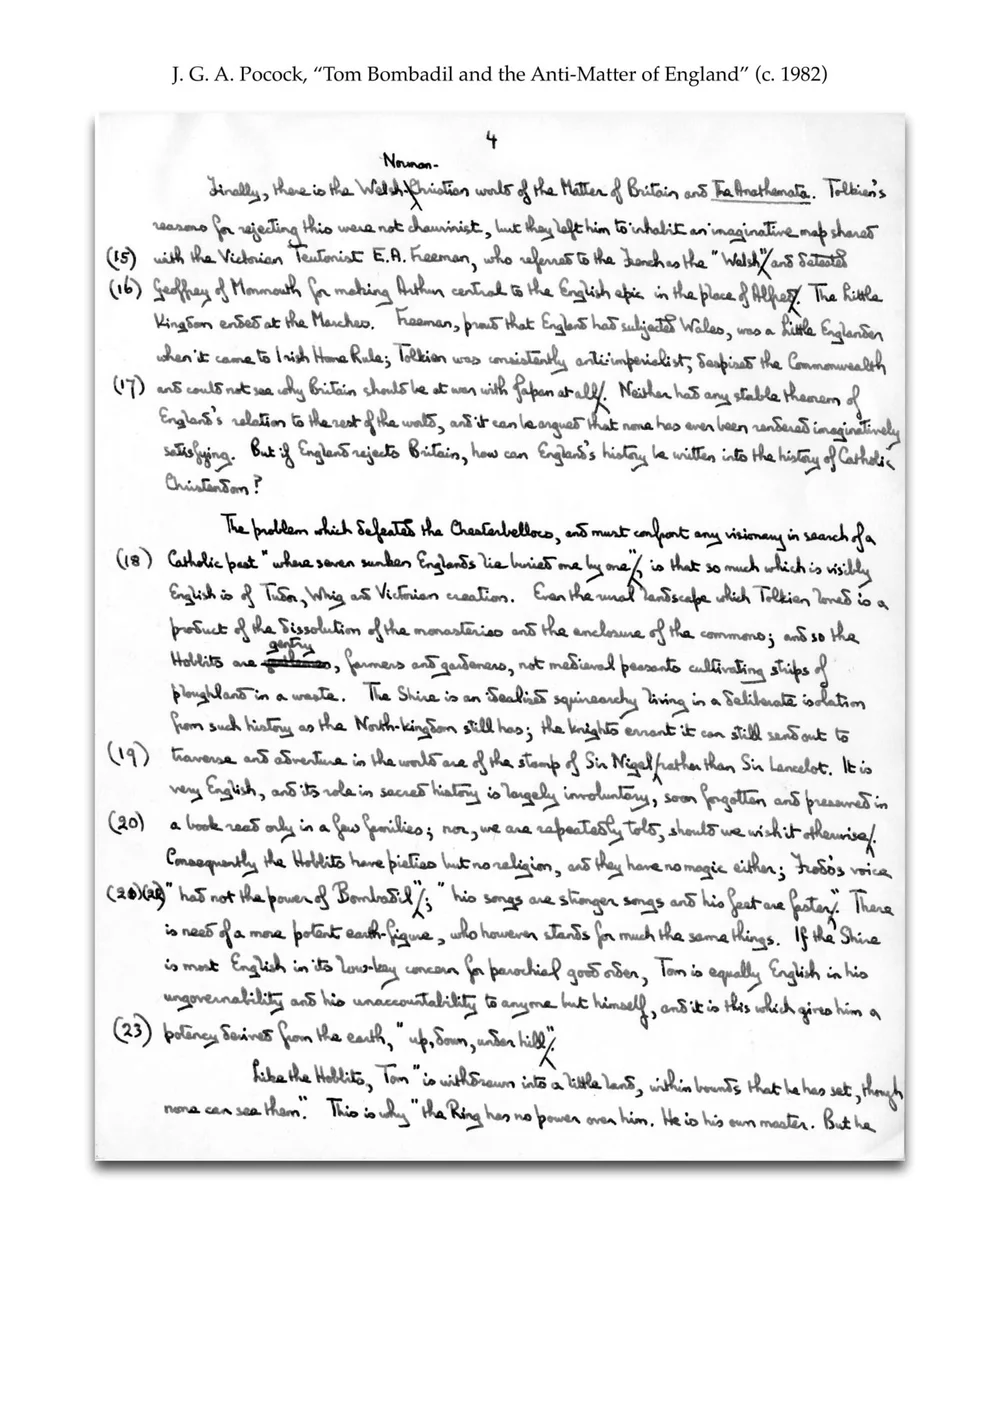 J. G. A. Pocock, “Tom Bombadil and the Anti-Matter of England” (c. 1982)
4
Norman-
Finally, there is the Welsh-Christian world of the Matter of Britain and The Anathemata. Tolkien's
reasons for rejecting this were not chauvinist, but they left him to inhabit an imaginative map shared
(15) with the Victorian Teutonist E.A. Freeman, who referred to the French as the "Welsh" and detested
(16) Geoffrey of Monmouth for making Arthur central to the English epic in the place of Alfred. The Little
Kingdom ended at the Marches. Freeman, proud that England had subjected Wales, was a Little Englander
when it came to Irish Home Rule; Tolkien was consistently anti-imperialist, despised the Commonwealth
(17) and could not see why Britain should be at war with Japan at all. Neither had any stable theorem of
England's relation to the rest of the world, and it can be argued that none has ever been rendered imaginatively
satisfying. But if England rejects Britain, how can England's history be written into the history of Catholic
Christendom?
The problem which defeated the Chesterbelloc, and must confront any visionary in search of a
(18) Catholic past "where seven sunken Englands lie buried one by one", is that so much which is visibly
English is of Tudor, Whig and Victorian creation. Even the rural landscape which Tolkien loved is a
product of the dissolution of the monasteries and the enclosure of the commons; and so the
gentry
Hobbits are , farmers and gardeners, not medieval peasants cultivating strips of
ploughland in a waste. The Shire is an idealised squirearchy living in a deliberate isolation
from such history as the North-kingdom still has; the knights errant it can still send out to
(19) traverse and adventure in the world are of the stamp of Sir Nigel rather than Sir Lancelot. It is
very English, and its role in sacred history is largely involuntary, soon forgotten and preserved in
(20) a book read only in a few families; nor, we are repeatedly told, should we wish it otherwise.
Consequently the Hobbits have pieties but no religion, and they have no magic either; Frodo's voice
"had not the power of Bombadil"; "his songs are stronger songs and his feet are faster". There
is need of a more potent earth-figure, who however stands for much the same things. If the Shire
is most English in its low-key concern for parochial good order, Tom is equally English in his
ungovernability and his unaccountability to anyone but himself, and it is this which gives him a
(23) potency derived from the earth, "up, down, under hill".
Like the Hobbits, Tom "is withdrawn into a little land, within bounds that he has set, though
none can see them". This is why "the Ring has no power over him. He is his own master. But he